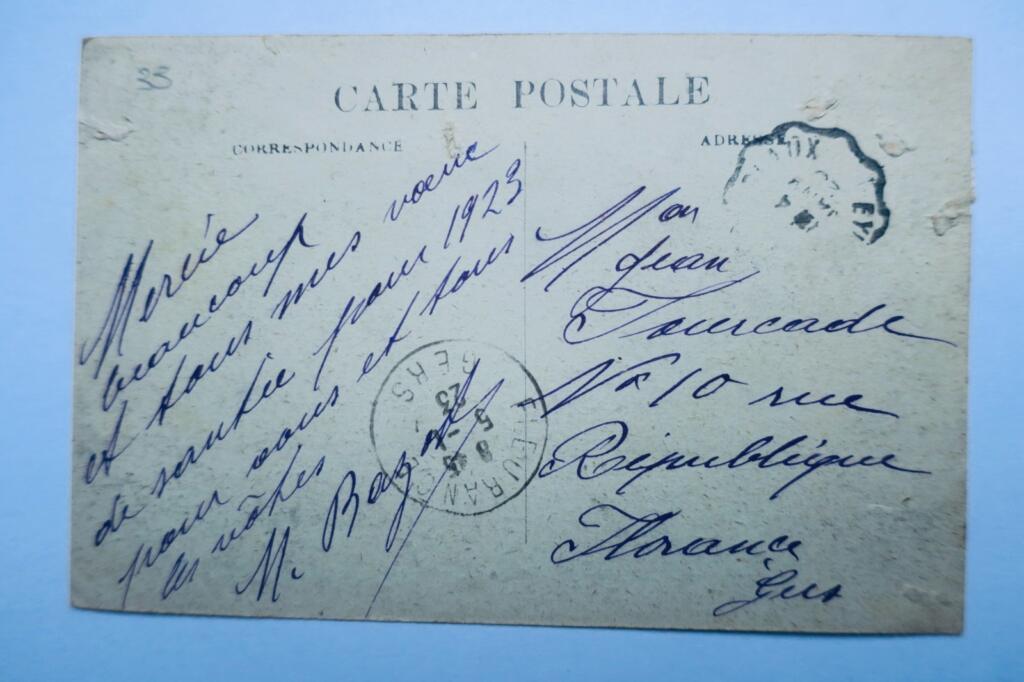 33
CARTE POSTALE
CORRESPONDANCE
ADRESSE
Merçie
beaucoup
et tous mes voeuc
de santée pour 1923
pour vous et tous
les vôtres
M.
Mon
Jean
Fourcade
No 10 rue
République
Florance
Gers
FLEURANCE
GERS
8
5 -1
23